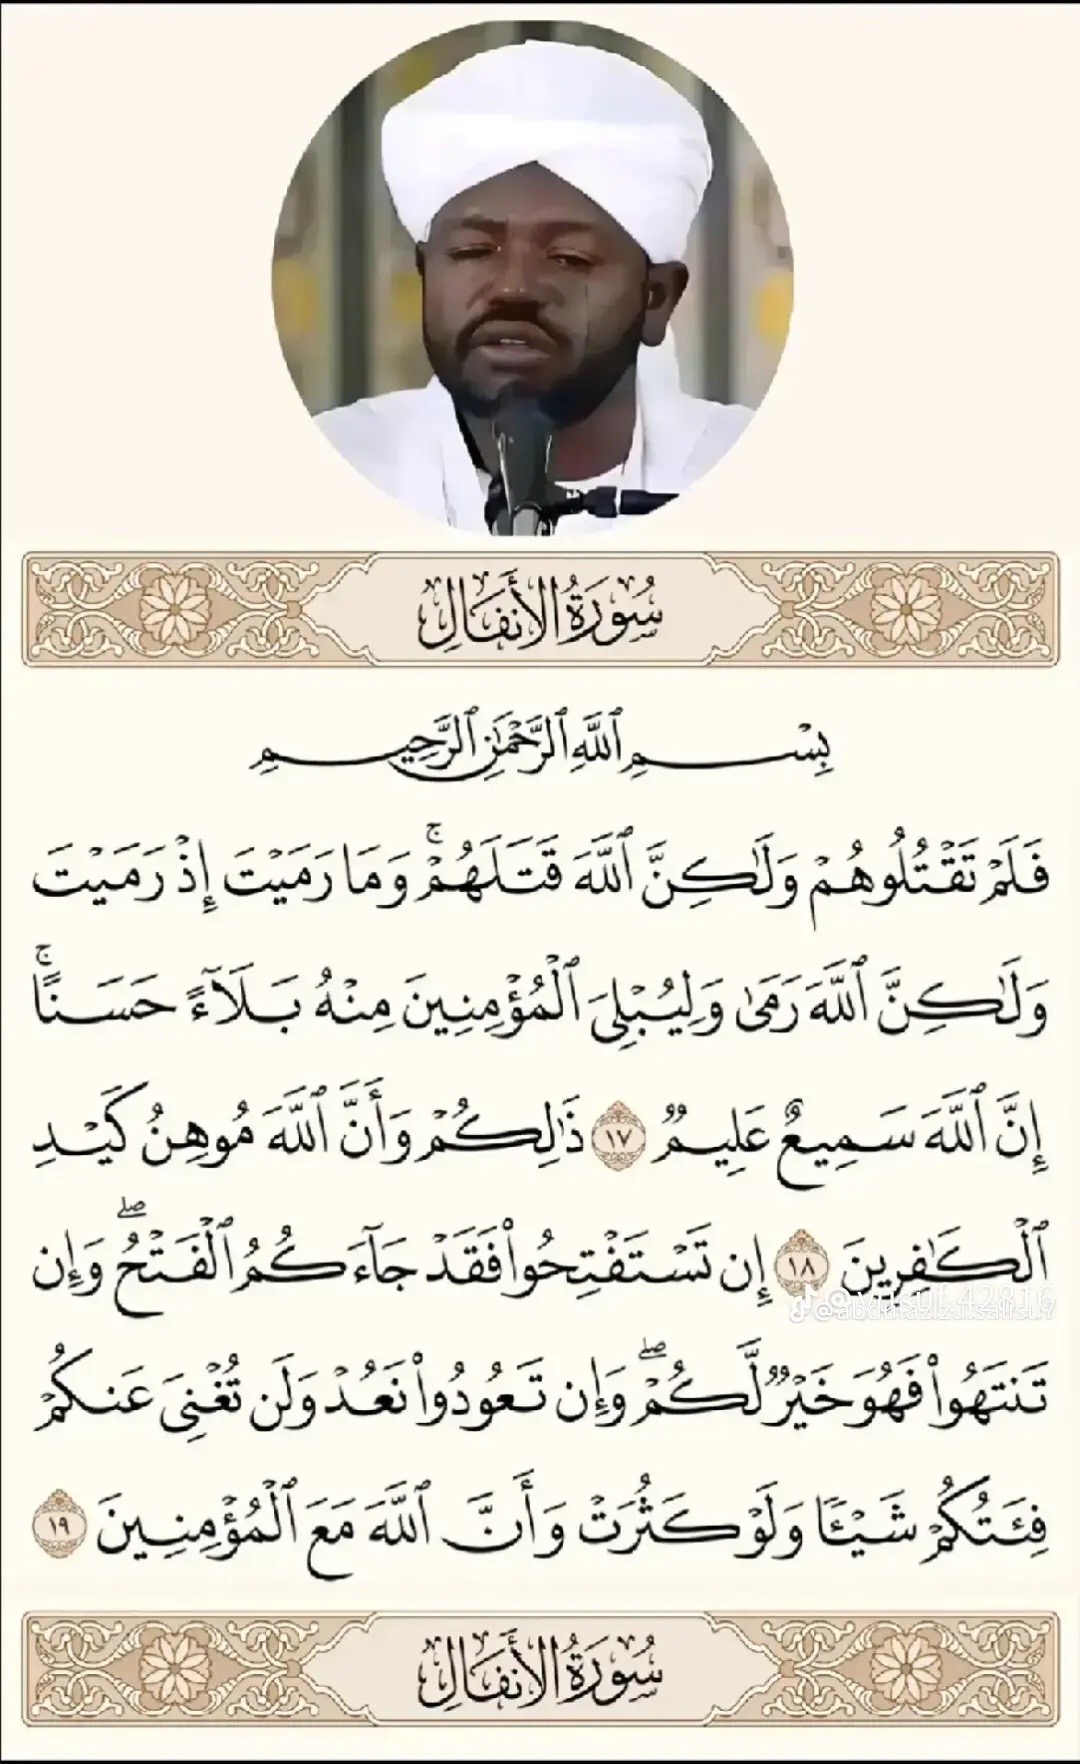 سُورَةُ الأَنفَالِ
بِسْمِ ٱللَّهِ ٱلرَّحْمَٰنِ ٱلرَّحِيمِ
فَلَمْ تَقْتُلُوهُمْ وَلَٰكِنَّ ٱللَّهَ قَتَلَهُمْۚ وَمَا رَمَيْتَ إِذْ رَمَيْتَ
وَلَٰكِنَّ ٱللَّهَ رَمَىٰ وَلِيُبْلِىَ ٱلْمُؤْمِنِينَ مِنْهُ بَلَآءً حَسَنًاۚ
إِنَّ ٱللَّهَ سَمِيعٌ عَلِيمٌ ١٧ ذَٰلِكُمْ وَأَنَّ ٱللَّهَ مُوهِنُ كَيْدِ
ٱلْكَٰفِرِينَ ١٨ إِن تَسْتَفْتِحُوا۟ فَقَدْ جَآءَكُمُ ٱلْفَتْحُۖ وَإِن
@abdulazizu.salisu7
تَنتَهُوا۟ فَهُوَ خَيْرٌ لَّكُمْۖ وَإِن تَعُودُوا۟ نَعُدْ وَلَن تُغْنِىَ عَنكُمْ
فِئَتُكُمْ شَيْـًٔا وَلَوْ كَثُرَتْ وَأَنَّ ٱللَّهَ مَعَ ٱلْمُؤْمِنِينَ ١٩
سُورَةُ الأَنفَالِ